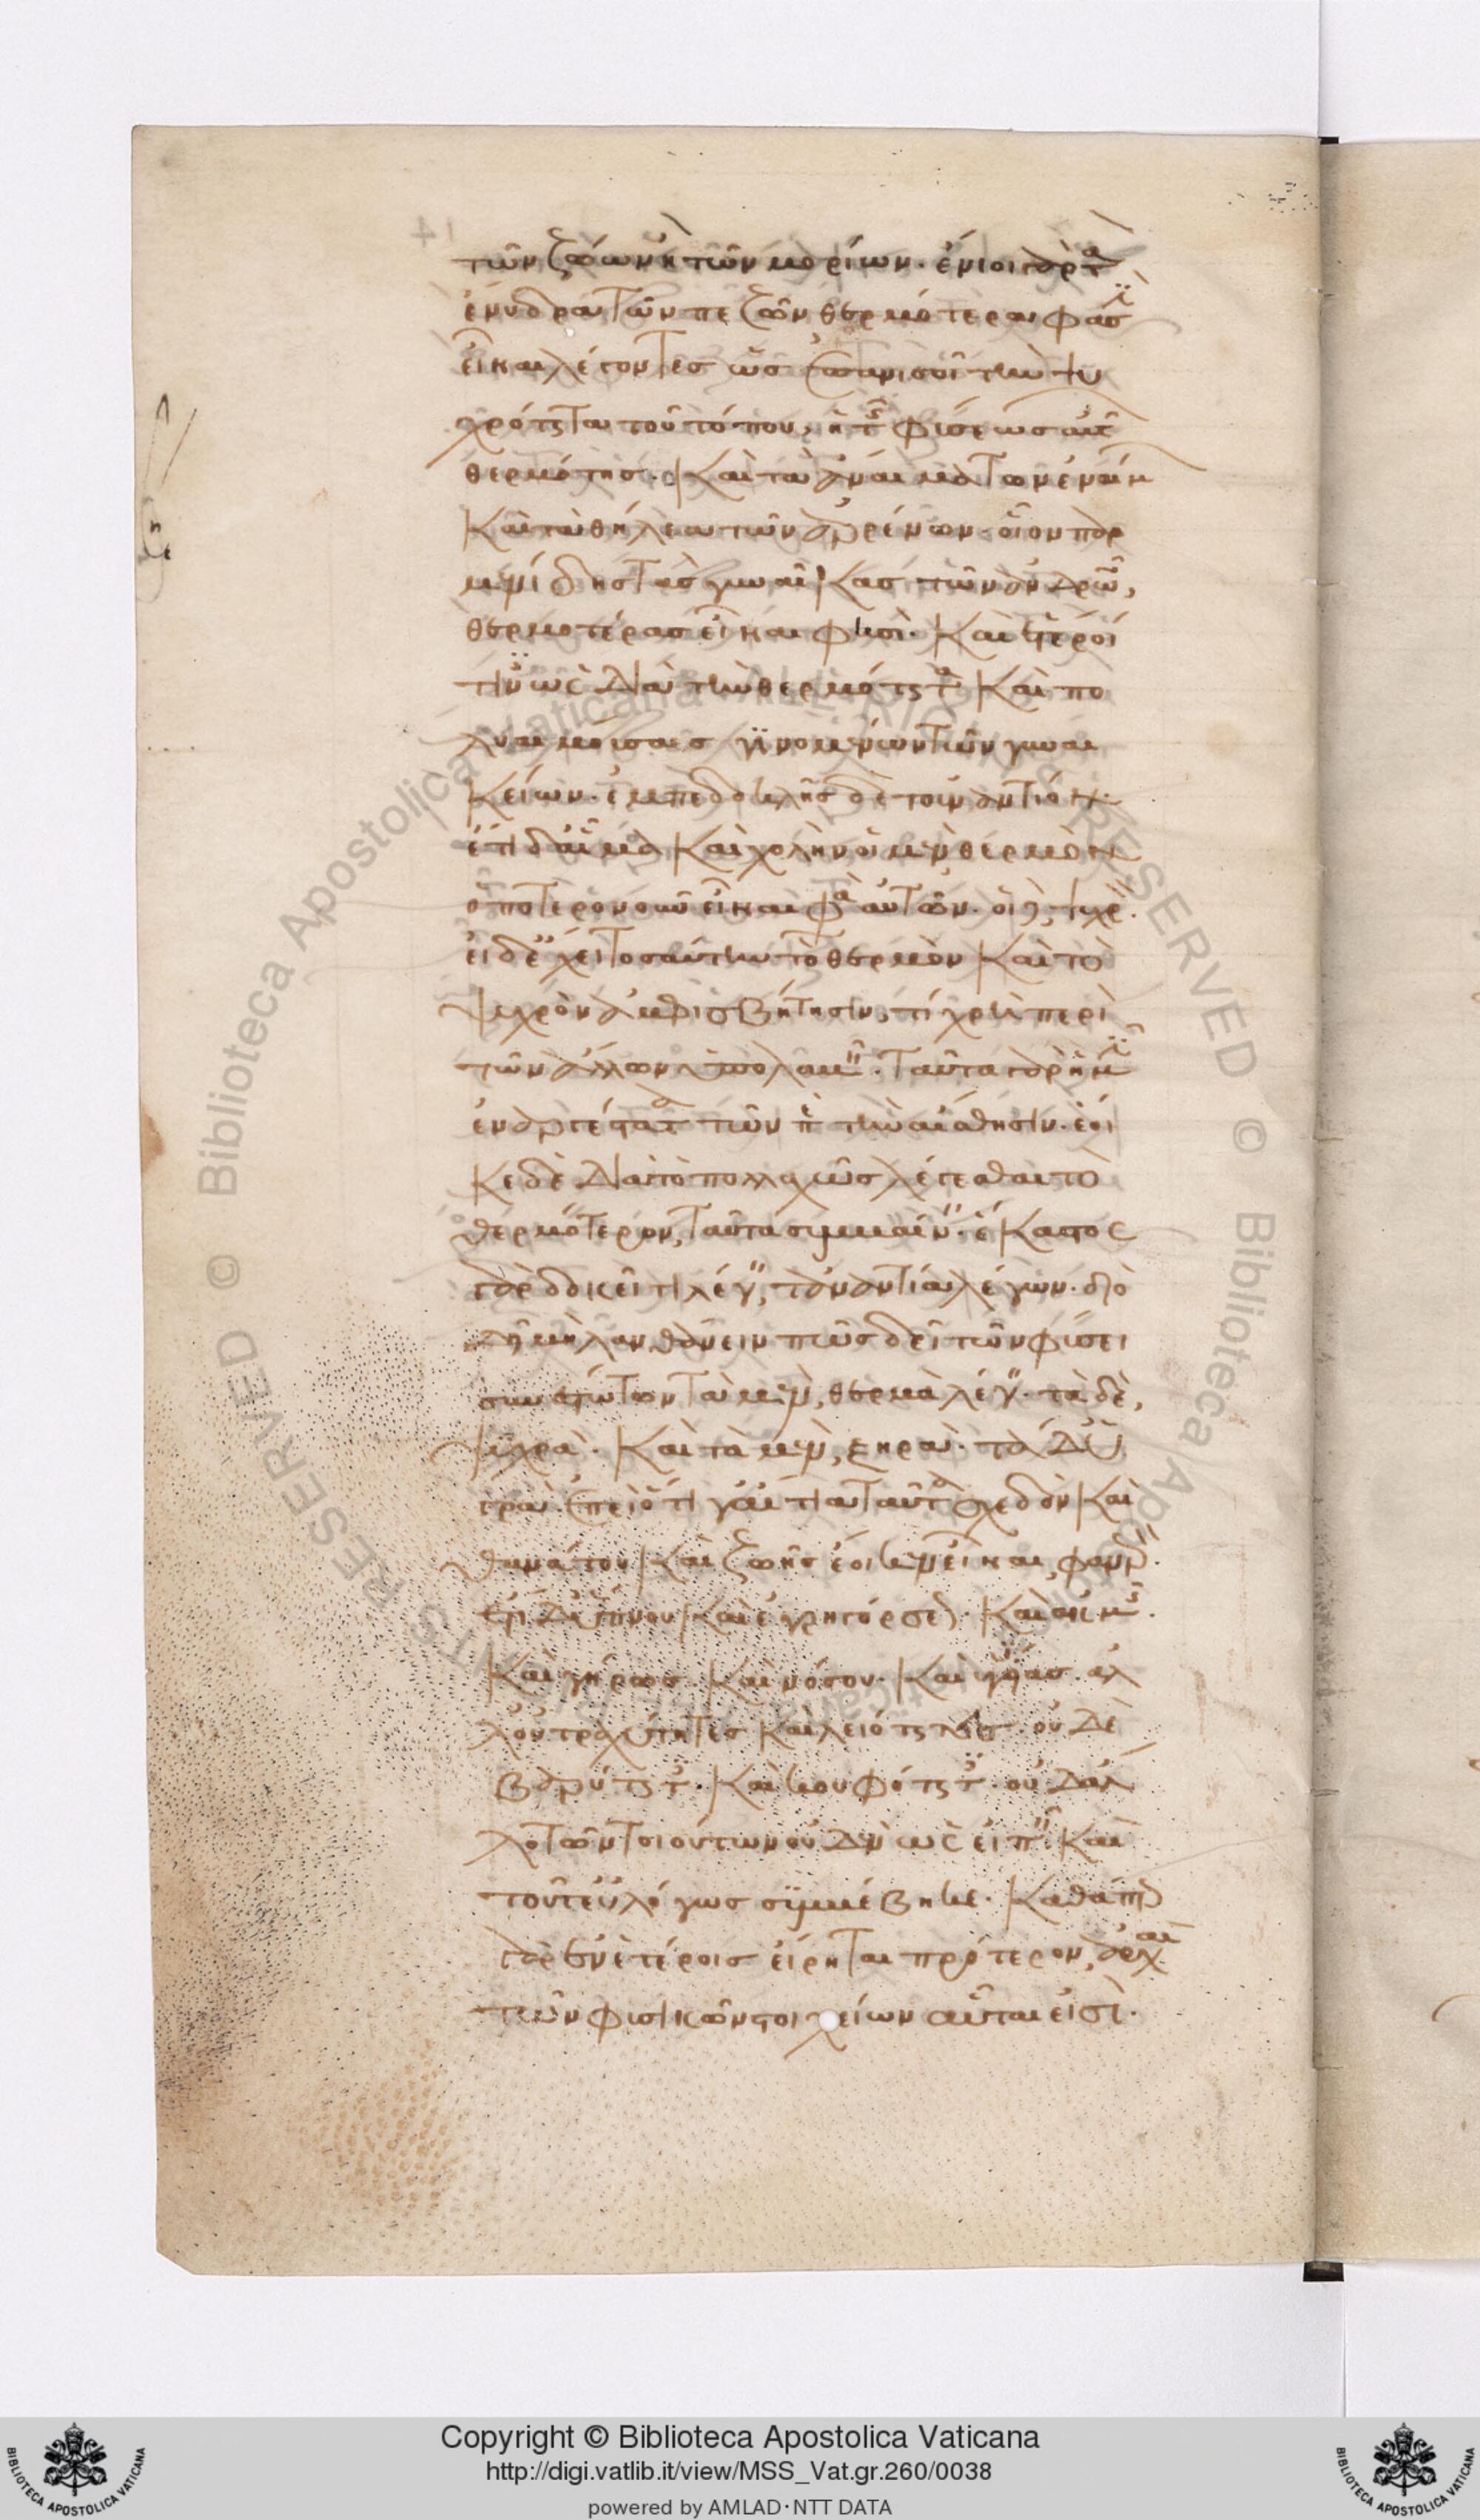 τῶν ζώων ἢ τῶν μορίων. ἔνιοι γὰρ τὰ
ἔνυδρα τῶν πεζῶν θερμότερα φασὶν
εἶναι λέγοντες ὡς ἐπανισοῖ τὴν ψυ
χρότητα τοῦ τόπου, ἡ τῆς φύσεως αὐτῶν
θερμότης. καὶ τὰ ἄναιμα τῶν ἐναίμων
καὶ τὰ θήλεα τῶν ἀρρένων. οἷον παρ
μενίδης τὰς γυναῖκας τῶν ἀνδρῶν,
θερμοτέρας εἶναι φησὶ. καὶ ἕτεροί
τινες ὡς διὰ τὴν θερμότητα καὶ πο
λυαιμούσαις γινομένων τῶν γυναι
κείων. ἐμπεδοκλῆς δὲ τοὐναντίον.
ἔτι δ' αἷμα καὶ χολὴν οἱ μὲν θερμὸν
ὁπότερον οὖν εἶναι φασὶν αὐτῶν. οἱ δὲ ψυχρόν.
εἰ δ' ἔχει τοσαύτην τὸ θερμὸν καὶ τὸ
ψυχρὸν ἀμφισβήτησιν, τί χρὴ περὶ
τῶν ἄλλων ὑπολαβεῖν. ταῦτα γὰρ ἡμῖν
ἐναργέστατα τῶν περὶ τὴν αἴσθησιν. ἔοι
κε δὲ διὰ τὸ πολλαχῶς λέγεσθαι τὸ
θερμότερον, ταῦτα συμβαίνειν. ἕκαστος
γὰρ δοκεῖ τι λέγειν, τἀναντία λέγων. διὸ
δεῖ μὴ λανθάνειν πῶς δεῖ τῶν φύσει
συνεστώτων τὰ μὲν, θερμὰ λέγειν. τὰ δὲ,
ψυχρά. καὶ τὰ μὲν, ξηρὰ. τὰ δ' ὑ
γρά. ἐπεὶ ὅτι γ' αἴτια ταῦτα σχεδὸν καὶ
θανάτου καὶ ζωῆς ἔοικεν εἶναι, φανερόν.
ἔτι δ' ὕπνου καὶ ἐγρηγόρσεως. καὶ ἀκμῆς.
καὶ γήρως. καὶ νόσου. καὶ ὑγιείας. ἀλ
λ' οὐ τραχύτητες καὶ λειότητες. οὐδὲ
βαρύτητες. καὶ κουφότητες. οὐδ' ἄλ
λο τῶν τοιούτων οὐδὲν ὡς εἰπεῖν. καὶ
τοῦτ' εὐλόγως συμβέβηκε. καθάπερ
γὰρ ἐν ἑτέροις εἴρηται πρότερον, ἀρχαὶ
τῶν φυσικῶν στοιχείων αὗται εἰσὶ.
Copyright © Biblioteca Apostolica Vaticana
http://digi.vatlib.it/view/MSS_Vat.gr.260/0038
powered by AMLAD·NTT DATA